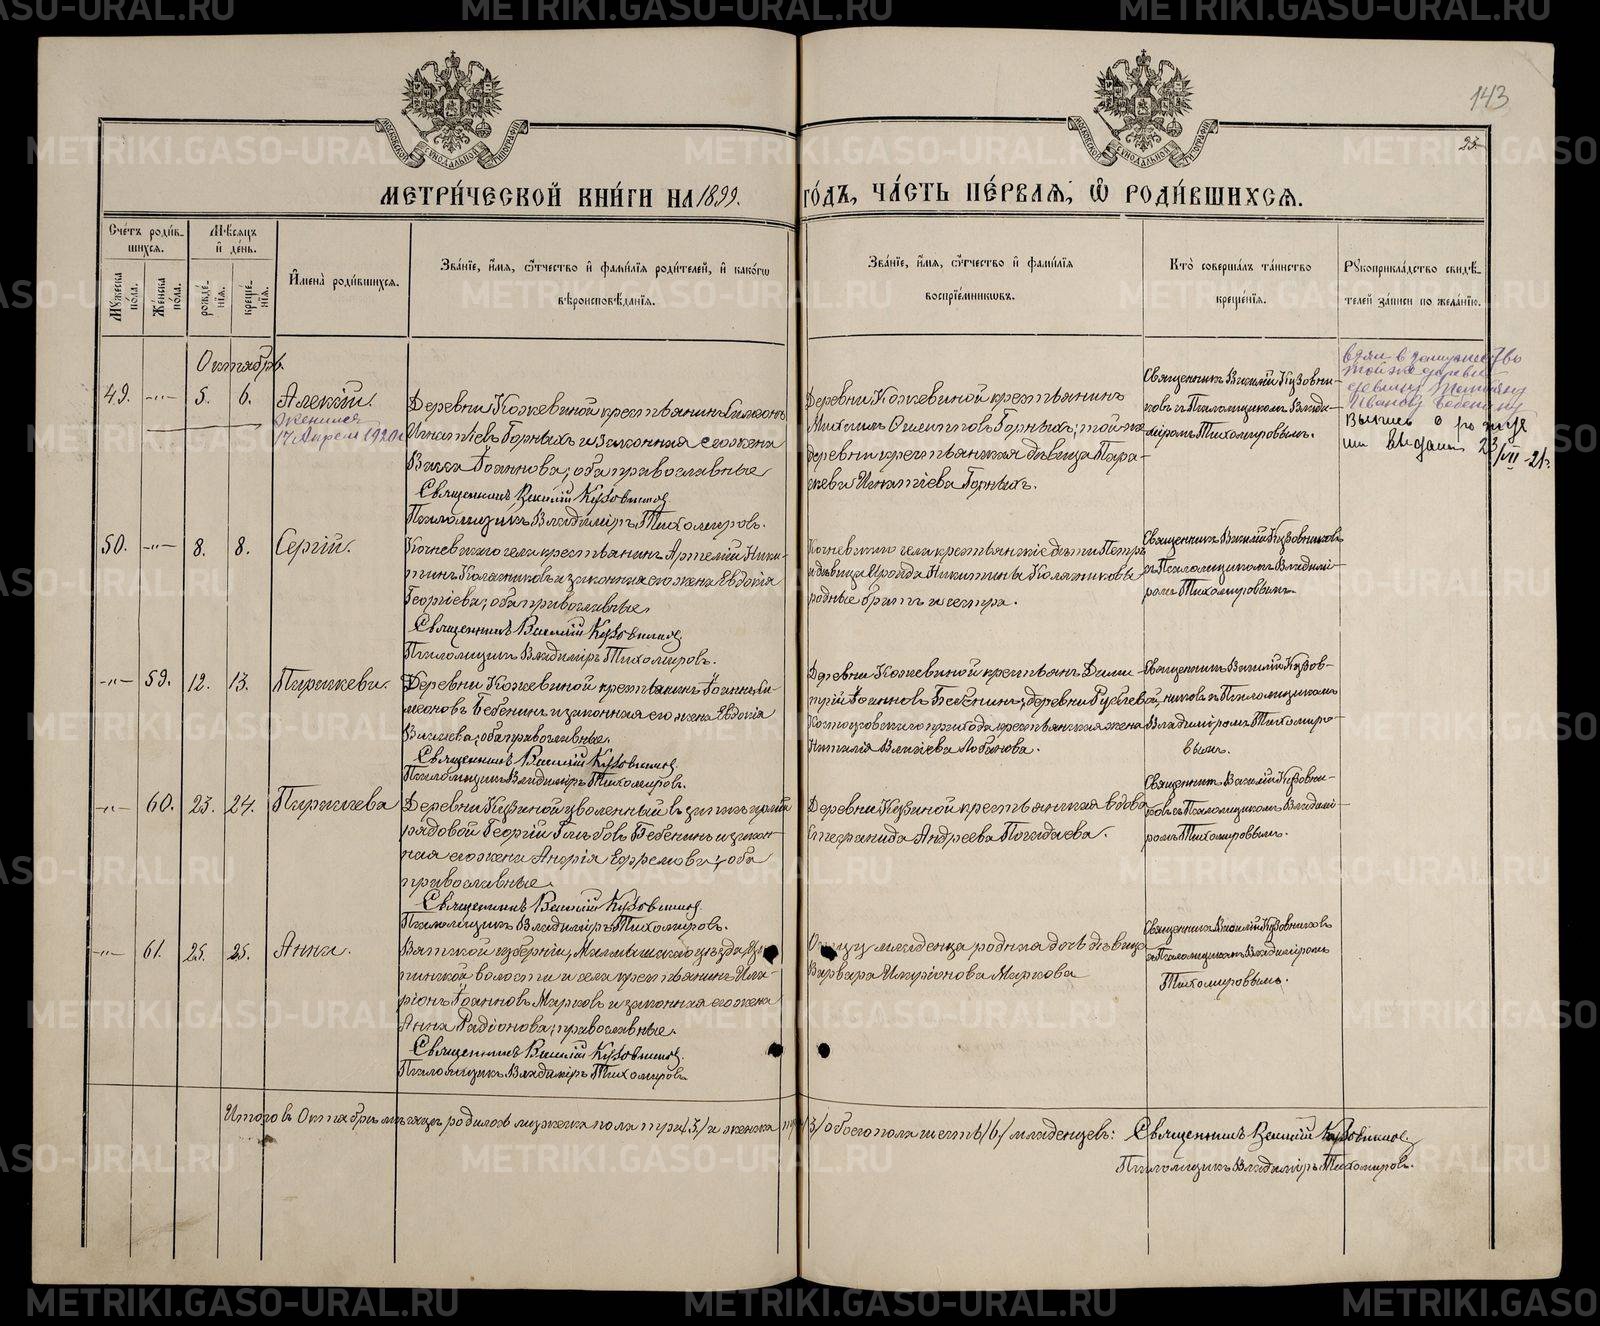 143
23.
МЕТРИ́ЧЕСКОЙ КНИ́ГИ НА 1899. ГО́ДЪ, ЧА́СТЬ ПЕ́РВАЯ, Ѡ РОДИ́ВШИХСЯ.
Сче́тъ роди́в-
шихся.
Му́жеска
по́ла.
Же́нска
по́ла.
Мѣ́сяцъ
и҆ де́нь.
рожде́-
нїя.
креще́-
нїя.
И҆мена̀ роди́вшихся.
Зва́нїе, и҆́мя, ѻ҆́тчество и҆ фамѝлїя роди́телей, и҆ како́гѡ
вѣроисповѣ́данїя.
Зва́нїе, и҆́мя, ѻ҆́тчество и҆ фамѝлїя
воспрїе́мниковъ.
Кто̀ соверша́лъ та́инство
креще́нїя.
Рꙋкоприкла́дство свидѣ́-
телей за́писи по жела́нїю.
Октябрь
49. -"- 5. 6. Алексій.
Женился
17 Апреля 1920 г.
Деревни Кожевиной крестьянинъ Симеонъ
Игнатіевъ Горныхъ и законная его жена
Васса Іоаннова; оба православные
Священникъ Василій Кузовниковъ
Псаломщикъ Владиміръ Тихомировъ.
Деревни Кожевиной крестьянинъ
Михаилъ Осиповъ Горныхъ; той же
деревни крестьянская дѣвица Пара-
скева Игнатіева Горныхъ.
Священникъ Василій Кузовни-
ковъ съ Псаломщикомъ Влади-
міромъ Тихомировымъ.
взял в замужество
той же деревни
девицу
Иванову Бабенину
Выпись о рожде
нии выдана 23/VII-21 г.
50. -"- 8. 8. Сергій.
села крестьянинъ Артемій Ники-
тинъ Колясниковъ и законная его жена Евдокія
Георгіева; оба православные.
Священникъ Василій Кузовниковъ
Псаломщикъ Владиміръ Тихомировъ.
села крестьянскіе дѣти Петръ
и дѣвица Ираида Никитины Колясниковы
родные братъ и сестра.
Священникъ Василій Кузовниковъ
съ Псаломщикомъ Владимі-
ромъ Тихомировымъ.
-"- 59. 12. 13. Параскева.
Деревни Кожевиной крестьянинъ Іоаннъ Си-
меоновъ Бабенинъ и законная его жена Евдокія
Васильева; оба православные.
Священникъ Василій Кузовниковъ
Псаломщикъ Владиміръ Тихомировъ.
Деревни Кожевиной крестьянинъ Дими-
трій Іоанновъ Бабенинъ; деревни
прихода крестьянская жена
Наталія Власіева Лобанова.
Священникъ Василій Кузов-
никовъ съ Псаломщикомъ
Владиміромъ Тихомиро-
вымъ.
-"- 60. 23. 24. Параскева
Деревни Кузиной уволенный въ запасъ арміи
рядовой Георгій Глѣбовъ Бабенинъ и закон-
ная его жена Ефремова; оба
православные.
Священникъ Василій Кузовниковъ
Псаломщикъ Владиміръ Тихомировъ.
Деревни Кузиной крестьянская вдова
Стефанида Андреева Погадаева.
Священникъ Василій Кузовни-
ковъ съ Псаломщикомъ Владимі-
ромъ Тихомировымъ.
-"- 61. 25. 25. Анна.
Вятской губерніи, Малмыжскаго уѣзда,
волости и села крестьянинъ Ила-
ріонъ Іоанновъ Марковъ и законная его жена
Анна Радіонова; православные.
Священникъ Василій Кузовниковъ
Псаломщикъ Владиміръ Тихомировъ.
Отцу младенца родная дочь дѣвица
Варвара Иларіонова Маркова
Священникъ Василій Кузовниковъ
съ Псаломщикомъ Владиміромъ
Тихомировымъ.
Итого въ Октябрѣ мѣсяцѣ родилось мужеска пола три /3/ и женска три /3/ обоего пола шесть /6/ младенцевъ: Священникъ Василій Кузовниковъ
Псаломщикъ Владиміръ Тихомировъ.
METRIKI.GASO-URAL.RU